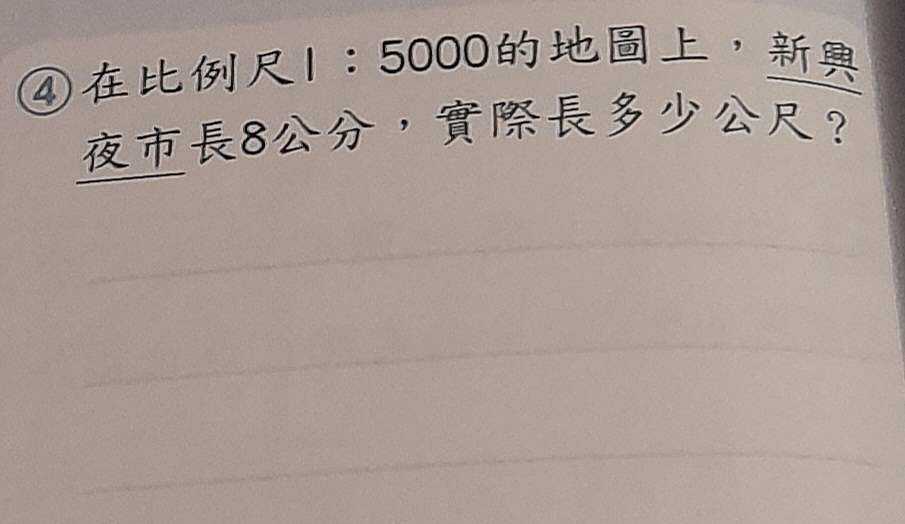 ④在比例尺1：5000的地圖上，新興
夜市長8公分，實際長多少公尺？